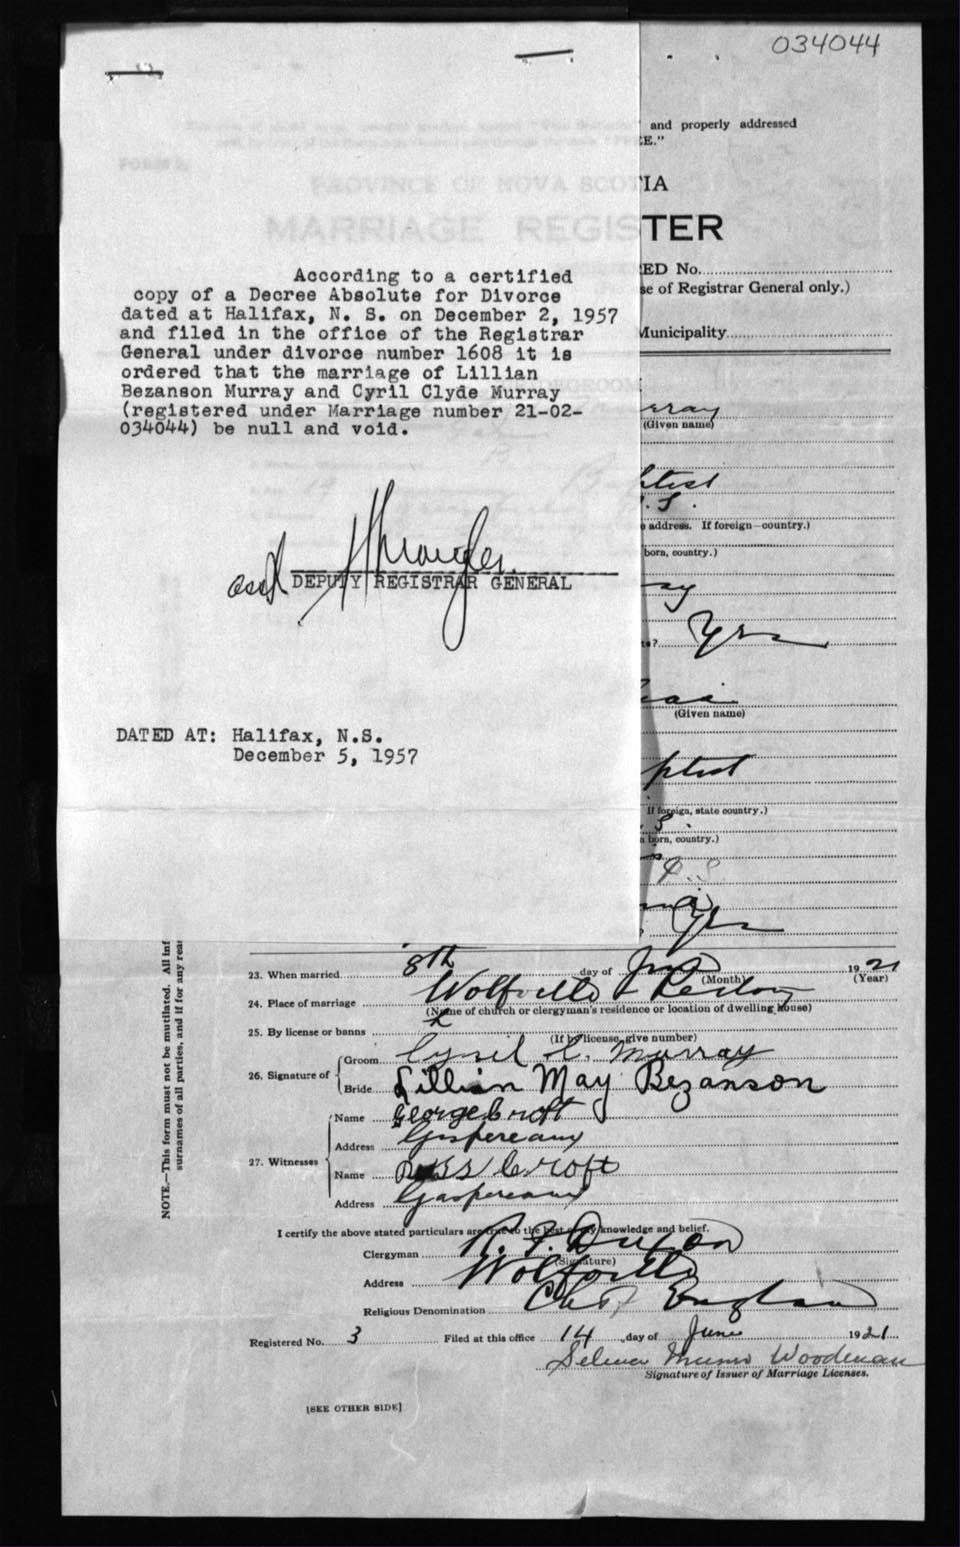 034044
and properly addressed
E."
IA
TER
ED No.
se of Registrar General only.)
Municipality
According to a certified
copy of a Decree Absolute for Divorce
dated at Halifax, N. S. on December 2, 1957
and filed in the office of the Registrar
General under divorce number 1608 it is
ordered that the marriage of Lillian
Bezanson Murray and Cyril Clyde Murray
(registered under Marriage number 21-02-
034044) be null and void.
DEPUTY REGISTRAR GENERAL
DATED AT: Halifax, N.S.
December 5, 1957
rray
(Given name)
ptist
. S.
address. If foreign—country.)
born, country.)
ay
Yes
(Given name)
ptist
If foreign, state country.)
S.
born, country.)
Yes
NOTE.—This form must not be mutilated. All inf
surnames of all parties, and if for any rea
23. When married 8th day of June 1921
(Month) (Year)
24. Place of marriage Wolfville Rectory
(Name of church or clergyman's residence or location of dwelling house)
25. By license or banns L
(If by license, give number)
26. Signature of Groom Cyril C. Murray
Bride Lillian May Bezanson
27. Witnesses Name George Croft
Address Gaspereaux
Name Ross Croft
Address Gaspereaux
I certify the above stated particulars are true to the best of my knowledge and belief.
Clergyman R. F. Dixon
(Signature)
Address Wolfville
Religious Denomination Ch of England
Registered No. 3 Filed at this office 14 day of June 1921
Selena Munro Woodman
Signature of Issuer of Marriage Licenses.
[SEE OTHER SIDE]